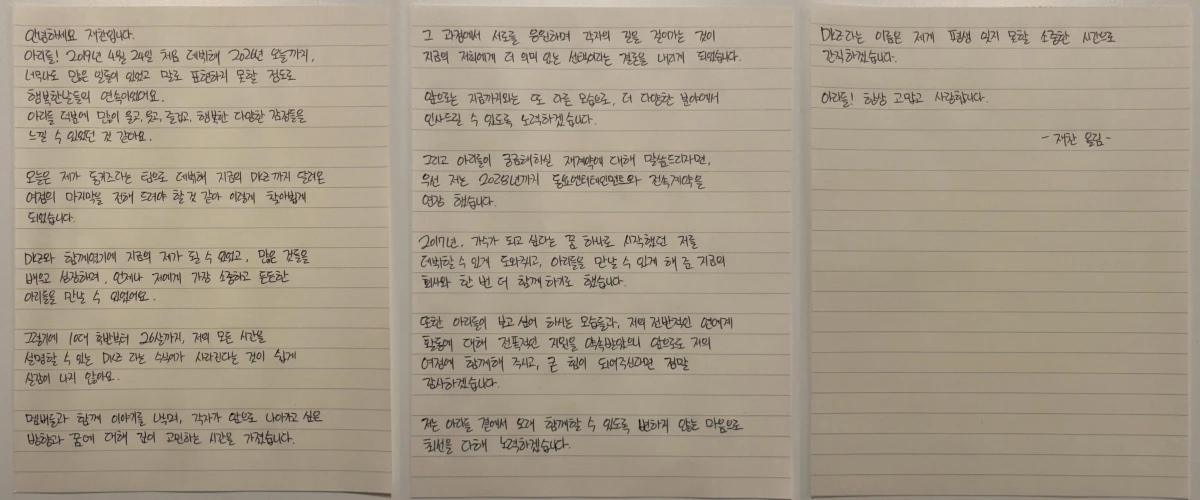 안녕하세요 재찬입니다.
아리들! 2019년 4월 24일 처음 데뷔해 2026년 오늘까지,
너무나도 많은 일들이 있었고 말로 표현하지 못할 정도로
행복한날들의 연속이었어요.
아리들 덕분에 많이 울고, 웃고, 즐겁고, 행복한 다양한 감정들을
느낄 수 있었던 것 같아요.
오늘은 제가 동키즈라는 팀으로 데뷔해 지금의 DKZ까지 달려온
여정의 마지막을 전해 드려야 할 것 같아 이렇게 찾아뵙게
되었습니다.
DKZ와 함께였기에 지금의 제가 될 수 있었고, 많은 것들을
배우고 성장하며, 언제나 저에게 가장 소중하고 든든한
아리들을 만날 수 있었어요.
그렇기에 10대 후반부터 26살까지, 저의 모든 시간을
설명할 수 있는 DKZ 라는 수식어가 사라진다는 것이 쉽게
실감이 나지 않아요.
멤버들과 함께 이야기를 나누며, 각자가 앞으로 나아가고 싶은
방향과 꿈에 대해 깊이 고민하는 시간을 가졌습니다.
그 과정에서 서로를 응원하며 각자의 길을 걸어가는 것이
지금의 저희에게 더 의미 있는 선택이라는 결론을 내리게 되었습니다.
앞으로는 지금까지와는 또 다른 모습으로, 더 다양한 분야에서
인사드릴 수 있도록 노력하겠습니다.
그리고 아리들이 궁금해하실 재계약에 대해 말씀드리자면,
우선 저는 2028년까지 동요엔터테인먼트와 전속계약을
연장 했습니다.
2017년, 가수가 되고 싶다는 꿈 하나로 시작했던 저를
데뷔할 수 있게 도와주시고, 아리들을 만날 수 있게 해 준 지금의
회사와 한 번 더 함께 하기로 했습니다.
또한 아리들이 보고 싶어 하시는 모습들과, 저의 전반적인 연예계
활동에 대해 전폭적인 지원을 약속받았으니 앞으로도 저의
여정에 함께해 주시고, 큰 힘이 되어주신다면 정말
감사하겠습니다.
저는 아리들 곁에서 오래 함께할 수 있도록 변하지 않는 마음으로
최선을 다해 노력하겠습니다.
DKZ라는 이름은 제게 평생 잊지 못할 소중한 시간으로
간직하겠습니다.
아리들! 항상 고맙고 사랑합니다.
- 재찬 올림 -